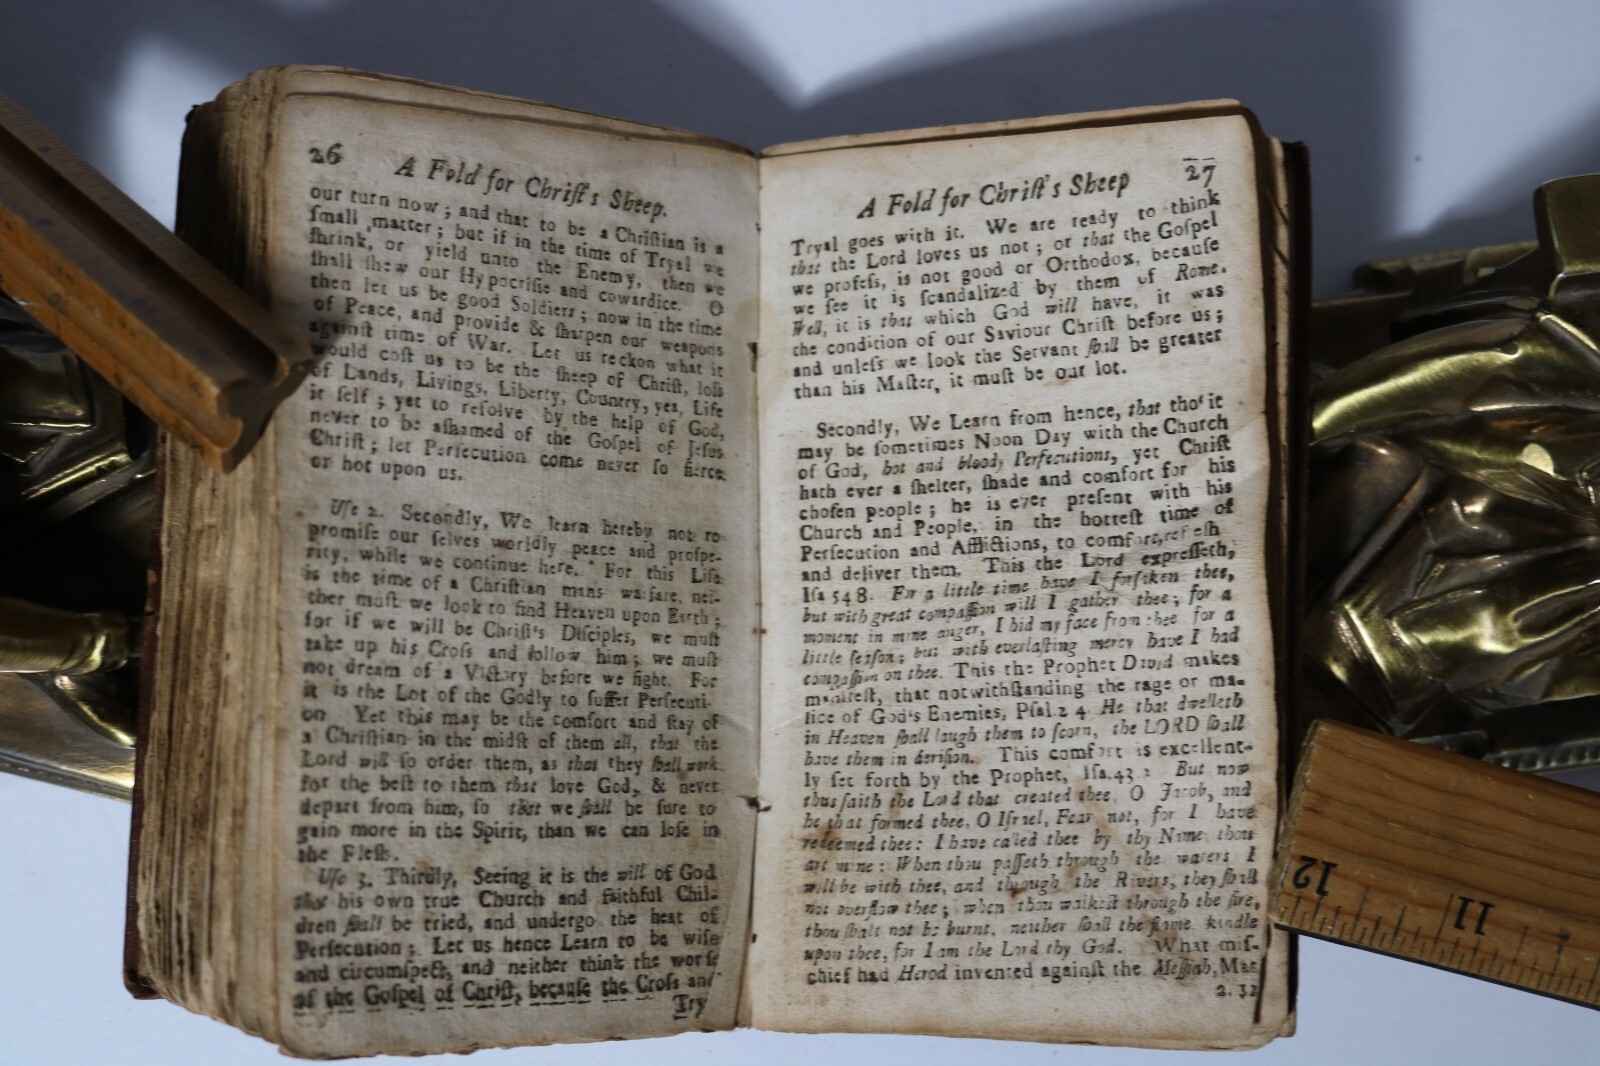 26
A Fold for Chriſt's Sheep.
our turn now; and that to be a Chriſtian is a
ſmall matter; but if in the time of Tryal we
ſhrink, or yield unto the Enemy, then we
ſhall ſhew our Hypocriſie and cowardice. O
then let us be good Soldiers; now in the time
of Peace, and provide & ſharpen our weapons
againſt time of War. Let us reckon what it
would coſt us to be the ſheep of Chriſt, loſs
of Lands, Livings, Liberty, Country, yes, Life
it ſelf; yet to reſolve by the help of God,
never to be aſhamed of the Goſpel of Jeſus
Chriſt; let Perſecution come never ſo fierce
or hot upon us.
Uſe 2. Secondly, We learn hereby not to
promiſe our ſelves worldly peace and proſpe-
rity, while we continue here. For this Life
is the time of a Chriſtian mans warfare, nei-
ther muſt we look to find Heaven upon Earth;
for if we will be Chriſt's Diſciples, we muſt
take up his Croſs and follow him; we muſt
not dream of a Victory before we fight. For
it is the Lot of the Godly to ſuffer Perſecuti-
on Yet this may be the comfort and ſtay of
a Chriſtian in the midſt of them all, that the
Lord will ſo order them, as that they ſhall work
for the beſt to them that love God, & never
depart from him, ſo that we ſhall be ſure to
gain more in the Spirit, than we can loſe in
the Fleſh.
Uſe 3. Thirdly, Seeing it is the will of God
that his own true Church and faithful Chil-
dren ſhall be tried, and undergo the heat of
Perſecution; Let us hence Learn to be wiſe
and circumſpect, and neither think the worſe
of the Goſpel of Chriſt, becauſe the Croſs and
Try
A Fold for Chriſt's Sheep
27
Tryal goes with it. We are ready to think
that the Lord loves us not; or that the Goſpel
we profeſs, is not good or Orthodox, becauſe
we ſee it is ſcandalized by them of Rome.
Well, it is that which God will have, it was
the condition of our Saviour Chriſt before us;
and unleſs we look the Servant ſhall be greater
than his Maſter, it muſt be our lot.
Secondly, We Learn from hence, that tho' it
may be ſometimes Noon Day with the Church
of God, hot and bloody Perſecutions, yet Chriſt
hath ever a ſhelter, ſhade and comfort for his
choſen people; he is ever preſent with his
Church and People, in the hotteſt time of
Perſecution and Afflictions, to comfort, refreſh
and deliver them. This the Lord expreſſeth,
Iſa 54 8. For a little time have I forſaken thee,
but with great compaſſion will I gather thee; for a
moment in mine anger, I hid my face from thee for a
little ſeaſon; but with everlaſting mercy have I had
compaſſion on thee. This the Prophet David makes
manifeſt, that notwithſtanding the rage or ma-
lice of God's Enemies, Pſal. 2 4. He that dwelleth
in Heaven ſhall laugh them to ſcorn, the LORD ſhall
have them in deriſion. This comfort is excellent-
ly ſet forth by the Prophet, Iſa. 43 2 But now
thus ſaith the Lord that created thee, O Jacob, and
he that formed thee, O Iſrael, Fear not, for I have
redeemed thee: I have called thee by thy Name thou
art mine: When thou paſſeth through the waters I
will be with thee, and through the Rivers, they ſhall
not overflow thee; when thou walkeſt through the fire,
thou ſhalt not be burnt, neither ſhall the flame kindle
upon thee, for I am the Lord thy God. What miſ-
chief had Herod invented againſt the Meſſiah, Mat
2. 32
12
11